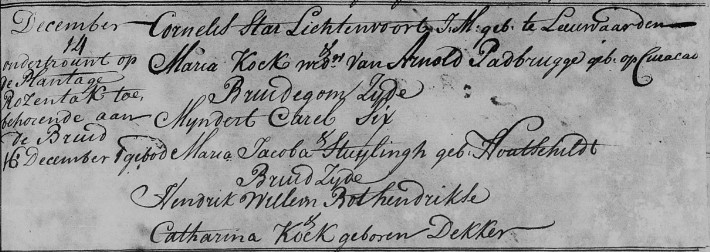 December
14
ondertrouwt op
de Plantage
Rozentak toe
behorende aan
de Bruid
16 December 1 gebod
Cornelis Star Lichtenvoort J.M: geb. te Leeuwaarden
&
Maria Kock wed:n van Arnold Padbrugge geb. op Curacao
Bruidegoms Zyde
Myndert Carel Six
&
Maria Jacoba Stuylingh geb. Houtschildt
Bruid Zyde
Hendrik Willem Rothendrikse
&
Catharina Kock geboren Dekker